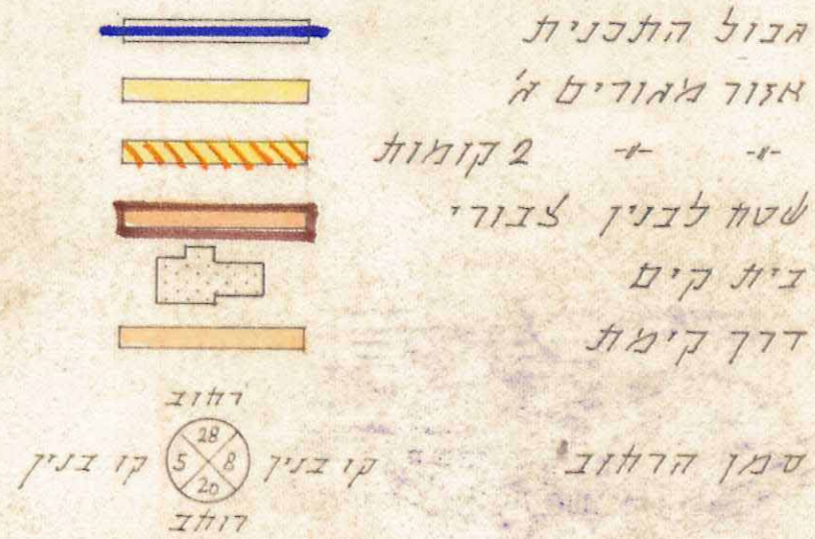 גבול התכנית
אזור מגורים ג'
-"- -"- 2 קומות
שטח לבנין צבורי
בית קים
דרך קימת
רחוב
28
סמן הרחוב קו בנין 8 5 קו בנין
20
רוחב